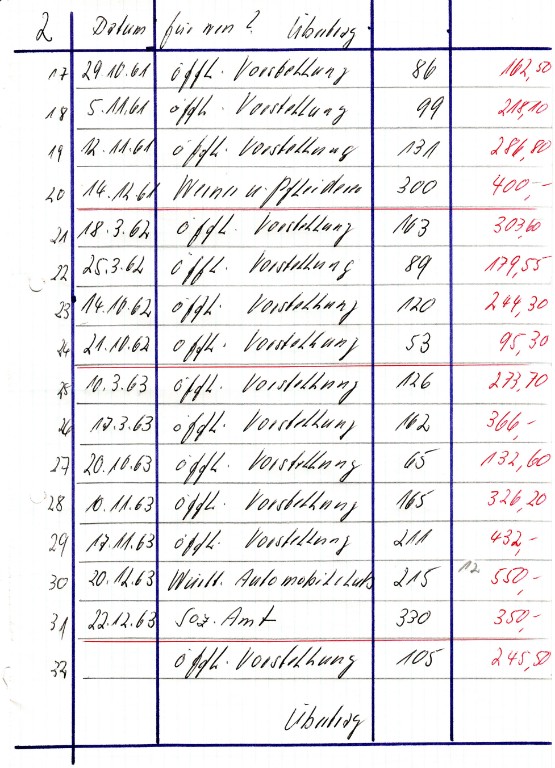 2 Datum für wen? Übertrag
17 29.10.61 öfftl. Vorstellung 86 162,50
18 5.11.61 öfftl. Vorstellung 99 218,10
19 12.11.61 öfftl. Vorstellung 131 286,80
20 14.12.61 Werner u. Pfleiderer 300 400,-
21 18.3.62 öfftl. Vorstellung 163 303,60
22 25.3.62 öfftl. Vorstellung 89 179,55
23 14.10.62 öfftl. Vorstellung 120 244,30
24 21.10.62 öfftl. Vorstellung 53 95,30
25 10.3.63 öfftl. Vorstellung 126 273,70
26 17.3.63 öfftl. Vorstellung 162 366,-
27 20.10.63 öfftl. Vorstellung 65 132,60
28 10.11.63 öfftl. Vorstellung 165 326,20
29 17.11.63 öfftl. Vorstellung 211 432,-
30 20.12.63 Württ. Automobilclub 215 12 550,-
31 22.12.63 Soz. Amt 330 350,-
32 öfftl. Vorstellung 105 245,50
Übertrag